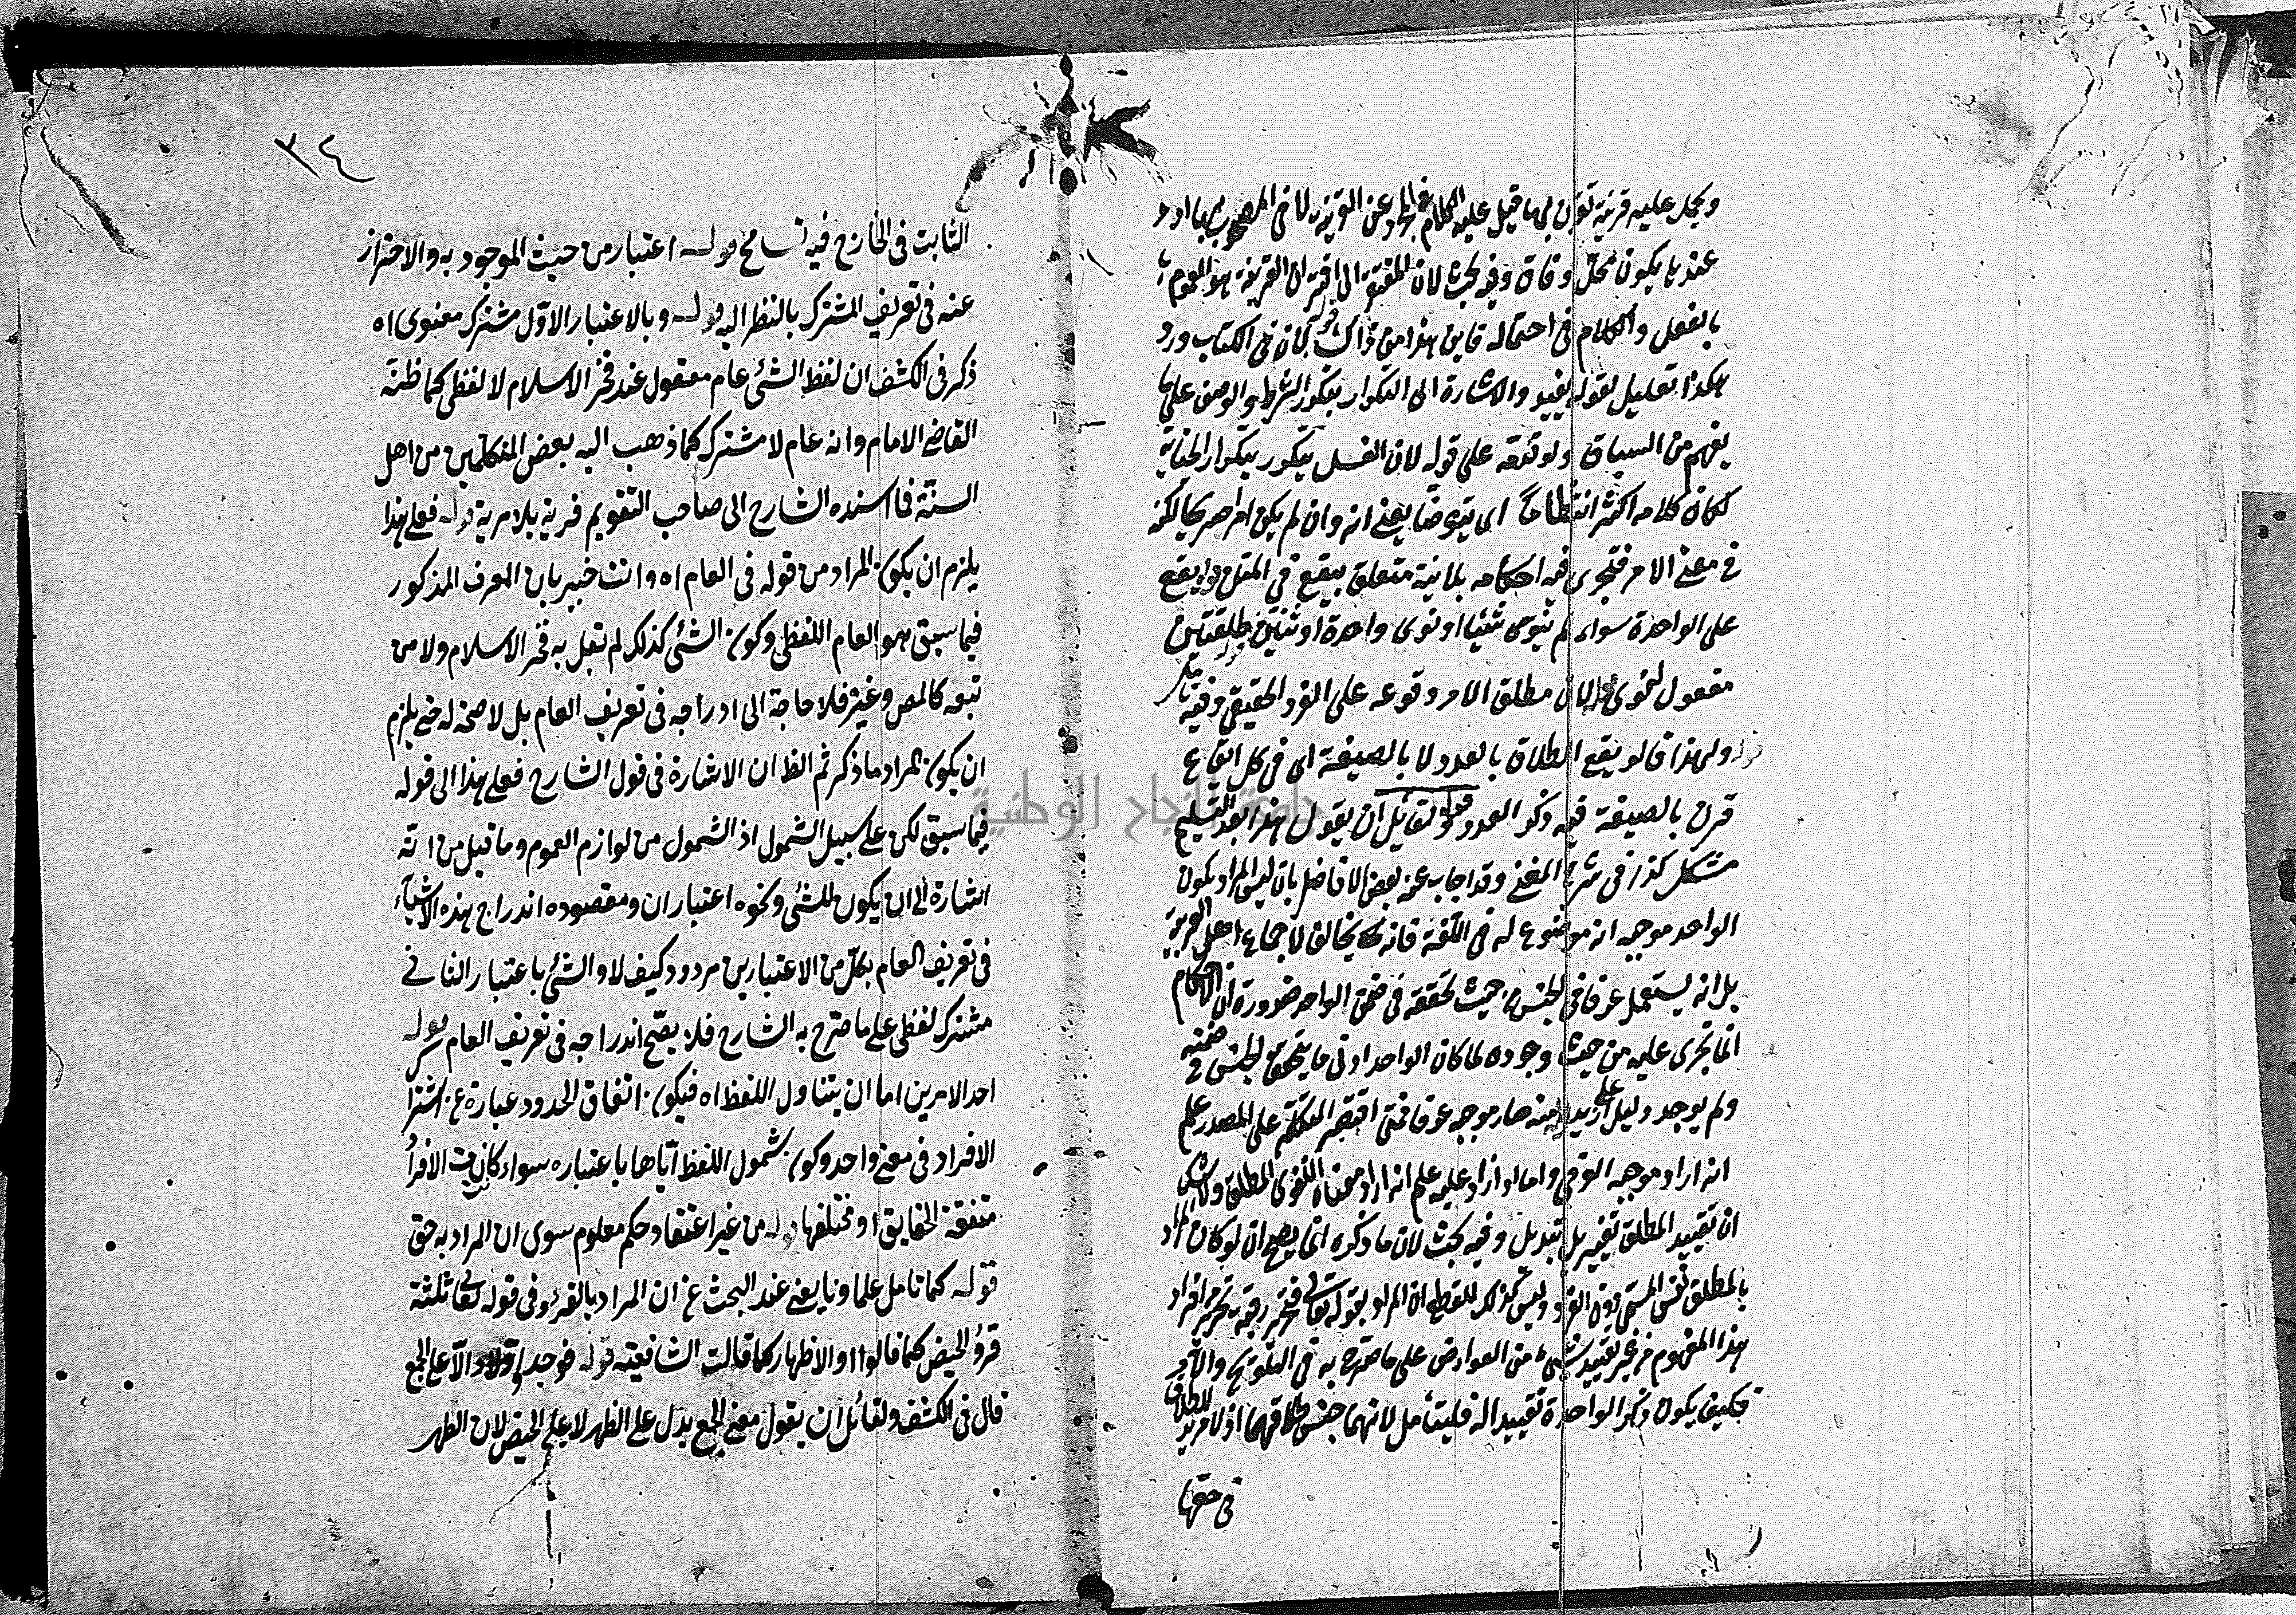 ويحمل عليه قرينة تقرن بها قيل عليه الكلام في المجرد عن القرينة لا في المصحوب بها اورد
عندنا يكون محل وفاق وفيه بحث لان المفتقر الى اقتران القرينة هو العموم
بالفعل والكلام في احتماله فاين هذا من ذاك قوله لان في الكتاب ورد
هكذا تعليل لقوله يفيد والاشارة الى التكرار بتكرر الشرط والوصف على ما
يفهم من السياق ولو قدمه على قوله لان الغسل يتكرر بتكرار الجناية
لكان كلامه اكثر انتظاما اي يتوضا يعني انه وان لم يكن امر صريحا لكنه
في معنى الامر فتجرى فيه احكامه بلا نية متعلق بيقع في المتن قوله يقع
على الواحدة سواء لم ينوى شيئا او نوى واحدة او ثنتين
مفعول لنوى قوله لان مطلق الامر وقوعه على الفرد الحقيقي وفيه
قوله ولهذا قالو يقع الطلاق بالعدد لا بالصيغة اي في كل ايقاع
قرن بالصيغة فيه ذكر العدد قوله ولقائل ان يقول هذا
مشكل كذا في شرح المغنى وقد اجاب عنه بعض الافاضل بان ليس المراد بكون
الواحد موجبه انه موضوع له في اللغة فانه مخالف لاجماع اهل العربية
بل انه يستعمل عرفا في الجنس من حيث تحققه في ضمن الواحد ضرورة ان الاحكام
انما تجرى عليه من حيث وجوده لما كان الواحد ادنى ما يتحقق الجنس في ضمنه
ولم يوجد دليل على ازيد منه صار موجبه عرفا فمتى اقتصر المتكلم على المصدر علم
انه اراد موجبه العرفي واما لو ازاد عليه علم انه اراد معناه اللغوي المطلق ولا شك
ان تقييد المطلق تغيير بل تبديل وفيه بحث لان ما ذكره انما يصح ان لو كان المراد
بالمطلق نفس المسمى دون الفرد وليس كذلك للقطع ان المراد بقوله تعالى فتحرير رقبة تحرير افراد
هذا المفهوم من غير تقييد بشيء من العوارض على ما صرح به في التلويح
فكيف يكون ذكر الواحدة تقييدا له فليتامل لانهما جنس طلاقهما اذ لا مزيد للطلاق
في حقها
٣٤
الثابت في الخارج فيه تسامح قوله اعتبار من حيث الموجود به والاحتراز
عنه في تعريف المشترك بالنظر اليه قوله وبالاعتبار الاول مشترك معنوى اه
ذكر في الكشف ان لفظ الشئ عام معقول عند فخر الاسلام لا لفظى كما ظنه
القاضى الامام وانه عام لا مشترك كما ذهب اليه بعض المتكلمين من اهل
السنة فما اسنده الشارح الى صاحب التقويم فرية بلا مرية قوله فعلى هذا
يلزم ان يكون المراد من قوله في العام اه وانت خبير بان المعرف المذكور
فيما سبق هو العام اللفظى وكون الشئ كذلك لم يقل به فخر الاسلام ولا من
تبعه كالمص وغيره فلا حاجة الى ادراجه في تعريف العام بل لا صحة له حتى يلزم
ان يكون المراد ما ذكر ثم الظ ان الاشارة في قول الشارح فعلى هذا الى قوله
فيما سبق لكن على سبيل الشمول اذ الشمول من لوازم العموم وما قيل من انه
اشارة الى ان يكون للشئ ونحوه اعتباران ومقصوده اندراج هذه الاشياء
في تعريف العام بكل من الاعتبارين مردود كيف لا والشئ باعتبار الثانى
مشترك لفظى على ما صرح به الشارح فلا يصح اندراجه في تعريف العام قوله
احد الامرين اما ان يتناول اللفظ اه فيكون اتفاق الحدود عبارة عن اشتراك
الافراد في معنى واحد وكون شمول اللفظ اياها باعتباره سواء كانت الافراد
متفقة الحقايق او مختلفها قوله من غير اعتقاد حكم معلوم سوى ان المراد به حق
قوله كما تامل علماونا يعنى عند البحث عن ان المراد بالقرؤ في قوله تعالى ثلثة
قرؤ الحيض كما قالوا او الاظهار كما قالت الشافعية قوله فوجد دالا على الجمع
قال في الكشف ولقائل ان يقول معنى الجمع يدل على الطهر لا على الحيض لان الطهر
جامعة النجاح الوطنية